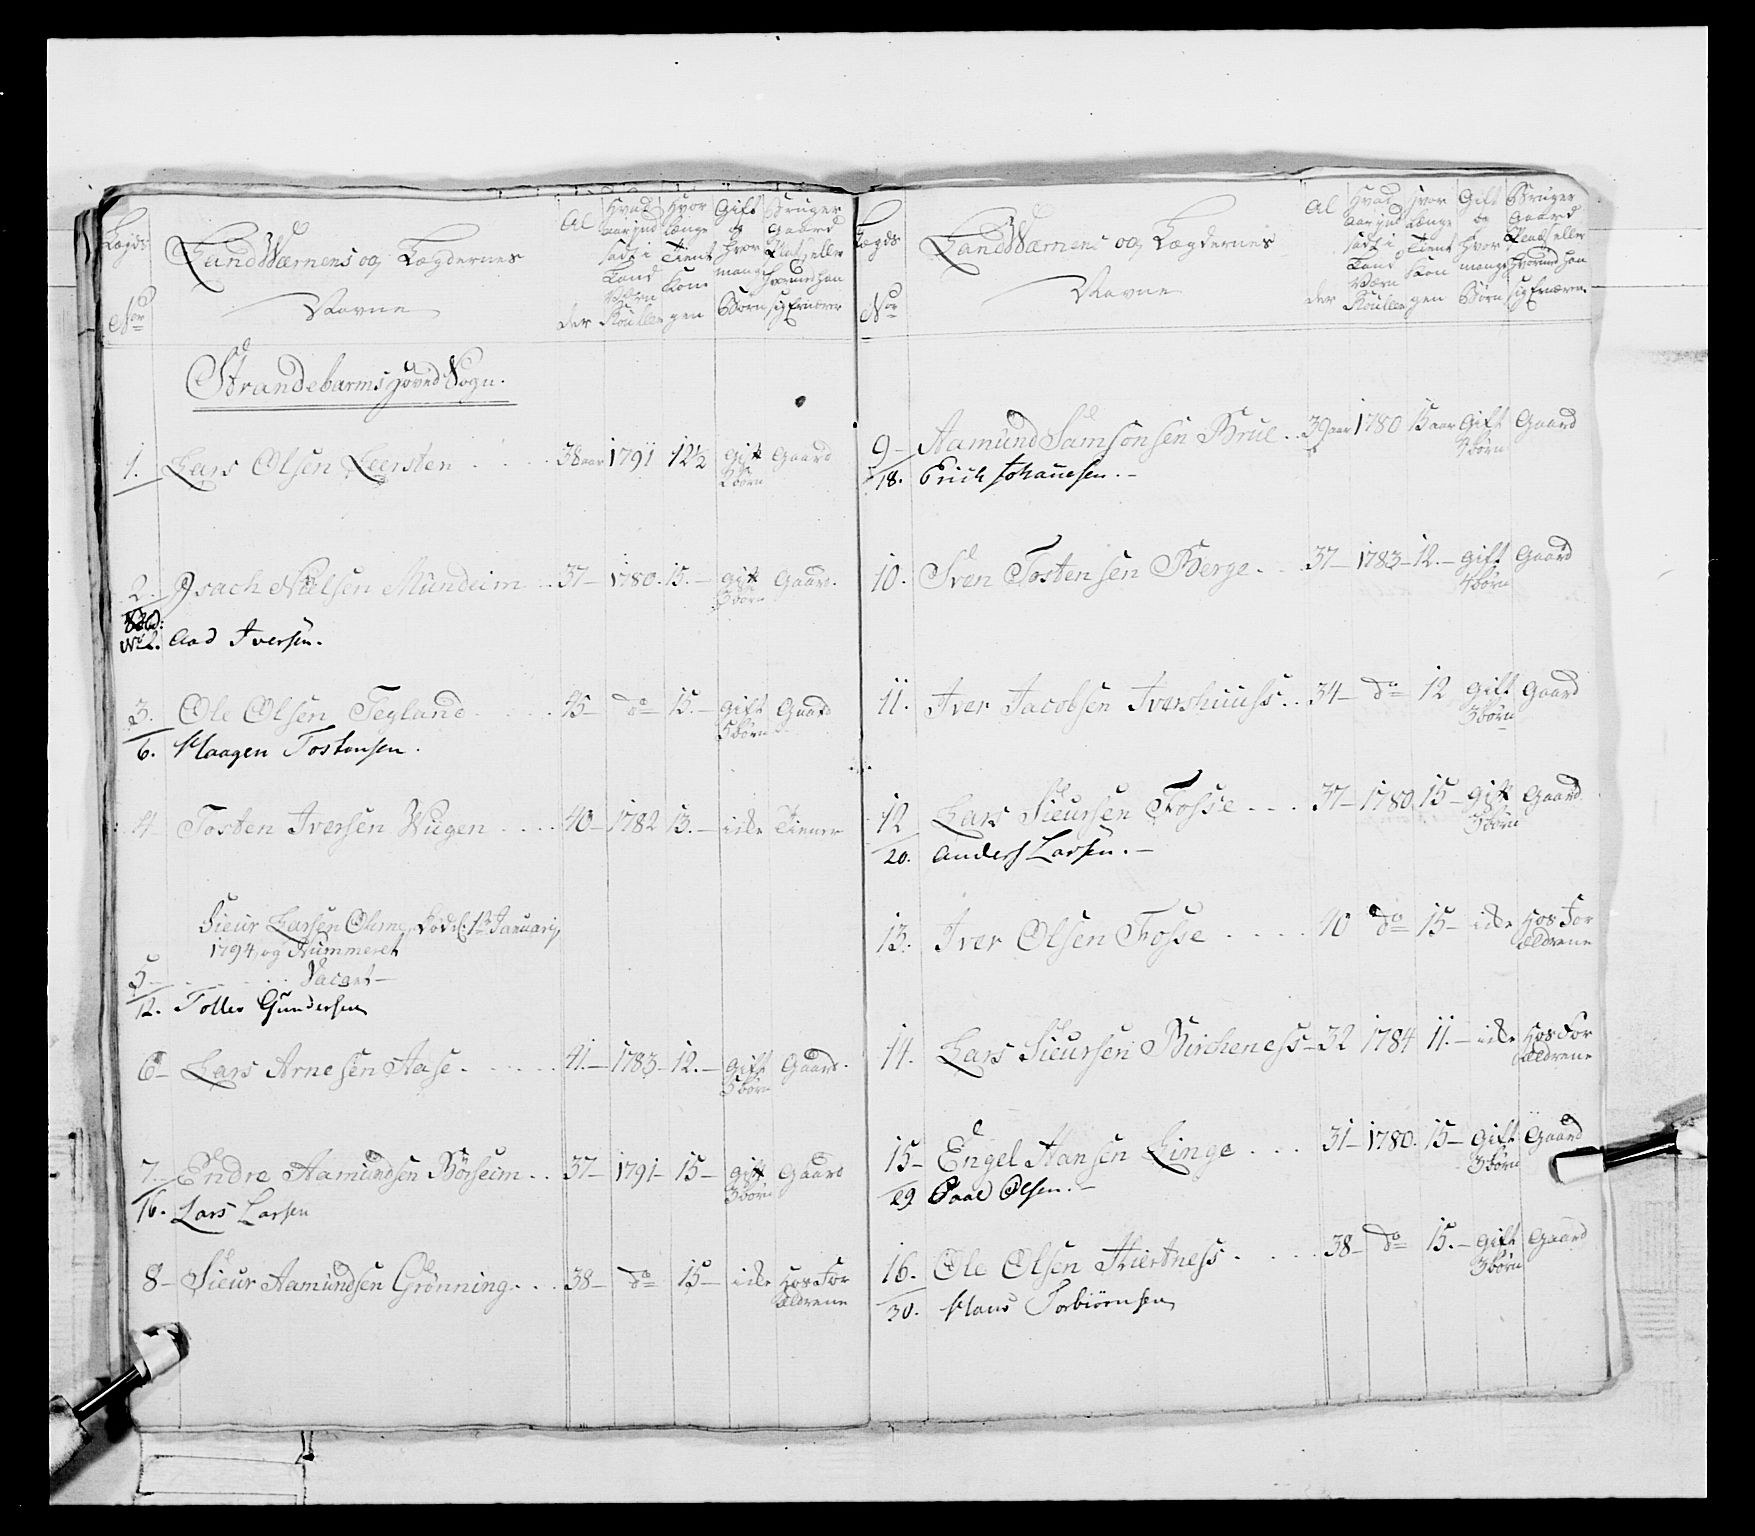 Lægds
No
LandWærnens og Lægdernes
Navne
Al
der
Hvad
Aar ind
sadt i
Land
Wærn
Roullen
Hvor
længe
Tient
Kon
gen
Gift
og
Hvor
mange
Børn
Bruger
Gaard
Plads eller
hvormed han
sig Ernærer
Strandebarms Hoved Sogn.
1. Lars Olsen Leersten 38 aar 1791 12½ Gift Gaard
2 børn
2. Isach Nielsen Mundeim 37 1780. 15. Gift Gaard.
3 børn
No 2. Aad Iversen.
3. Ole Olsen Tegland 45 do 15. Gift Gaard
5 børn
6. Haagen Tostensen.
4 Tosten Iversen Wiigen 40 1782 13. ikke Tiener
Sieur Larsen død d. 13 Januarij
1794, og Nummeret
5 Vacant
12. Tolles Gundersen
6 Lars Arnesen Aase 41. 1783 12. Gift Gaard.
5 børn
7. Endre Aamundsen Børseim 37 1791 15 Gift Gaard
3 børn
16. Lars Larsen
8 Sieur Aamundsen Grønning 38 do 15 ikke Hos For
ældrene
Lægds
No
LandWærnens og Lægdernes
Navne
Al
der
Hvad
Aar ind
sadt i
Land
Wærn
Roullen
Hvor
længe
Tient
Kon
gen
Gift
og
Hvor
mange
Børn
Bruger
Gaard
Plads eller
hvormed han
sig Ernærer
9 Aamund Samsonsen Brue 39 aar 1780 15 aar Gift Gaard
4 børn
18. Erich Johannesen.
10. Sven Tostensen Berge 37 1783 12. Gift Gaard
4 børn
11. Iver Jacobsen Ivershuuss 34 do 12 Gift Gaard
3 børn
12 Lars Sieursen Fosse 37 1780 15 Gift Gaard
3 børn
20. Anders Larsen.
13. Iver Olsen Fosse 40 do 15 ikke Hos For
ældrene
14. Lars Sieursen Bircheness 32 1784 11. ikke Hos For
ældrene
15 Engel Hansen Linge 31 1780. 15 Gift Gaard
3 børn
29 Paal Olsen.
16. Ole Olsen Kiertness 38 do 15. Gift Gaard
3 børn
30. Hans Torbiørnsen